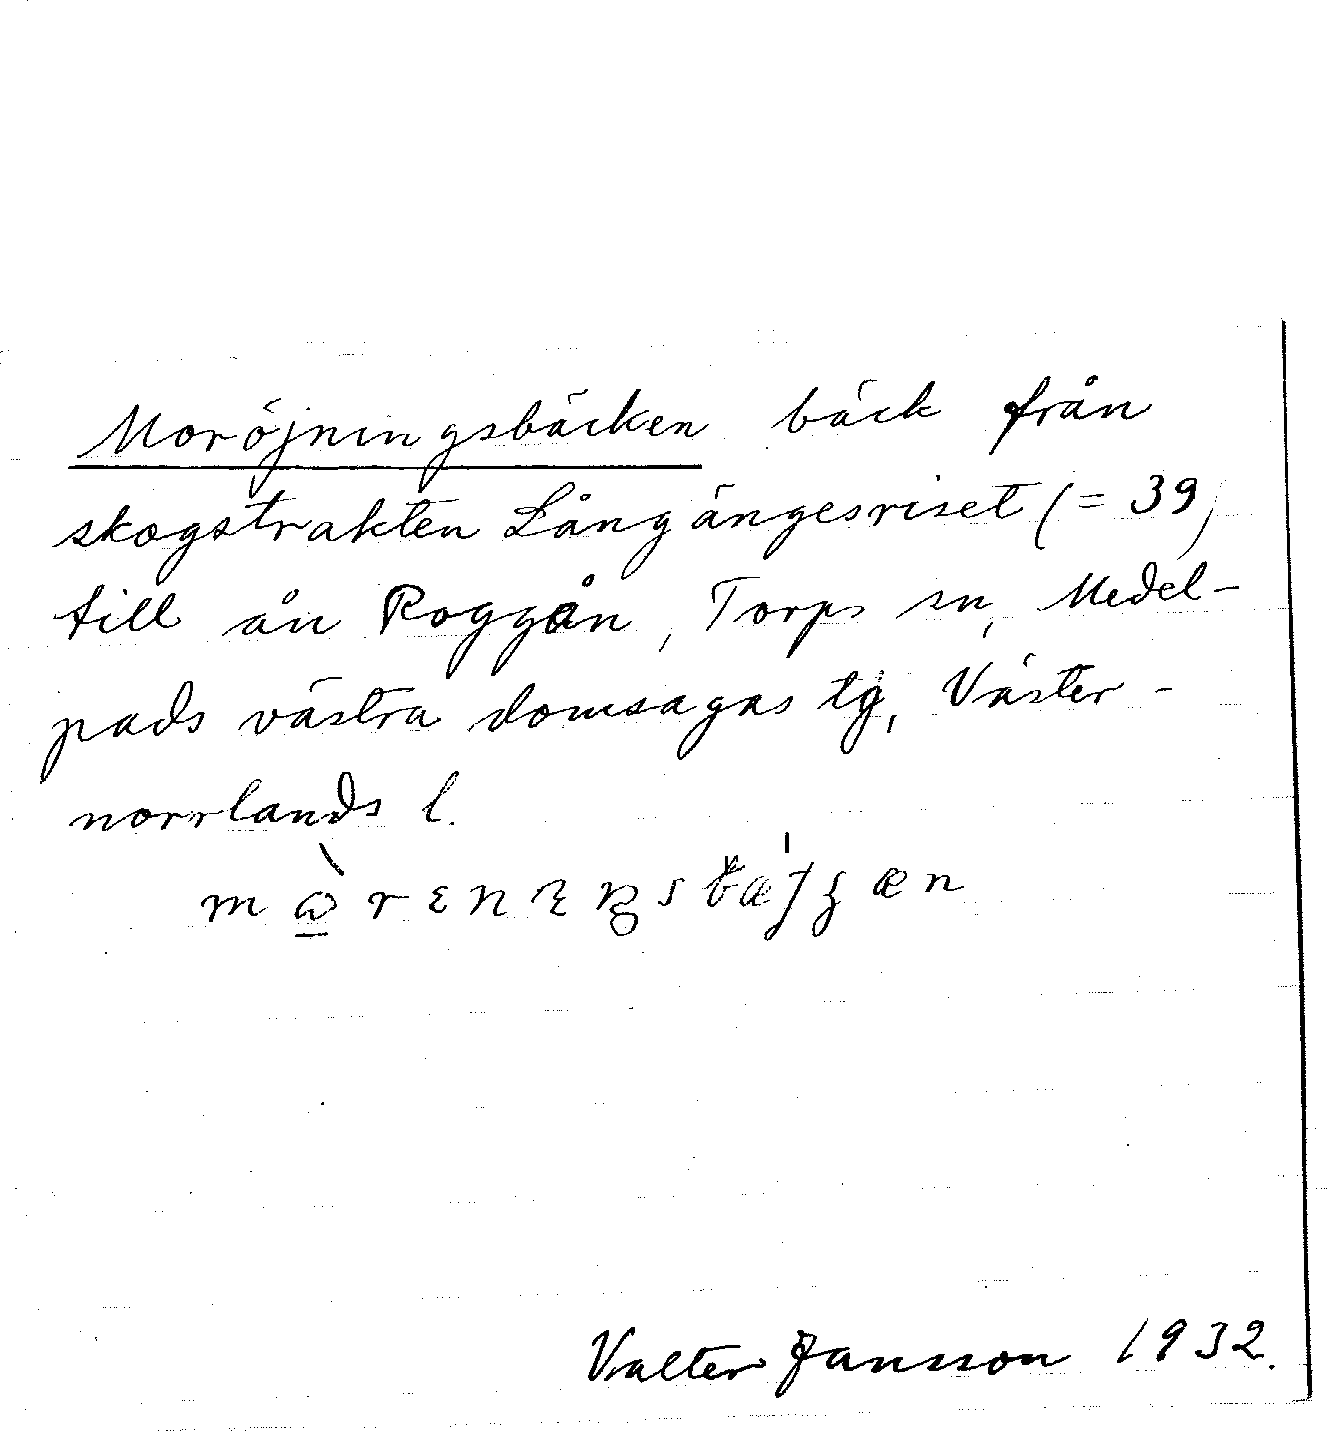 Moröjningsbäcken bäck från
skogstrakten Långängesriset (= 39)
till ån Roggån, Torps sn, Medel-
pads västra domsagas tg, Väster-
norrlands l.
Valter Jansson 1932.